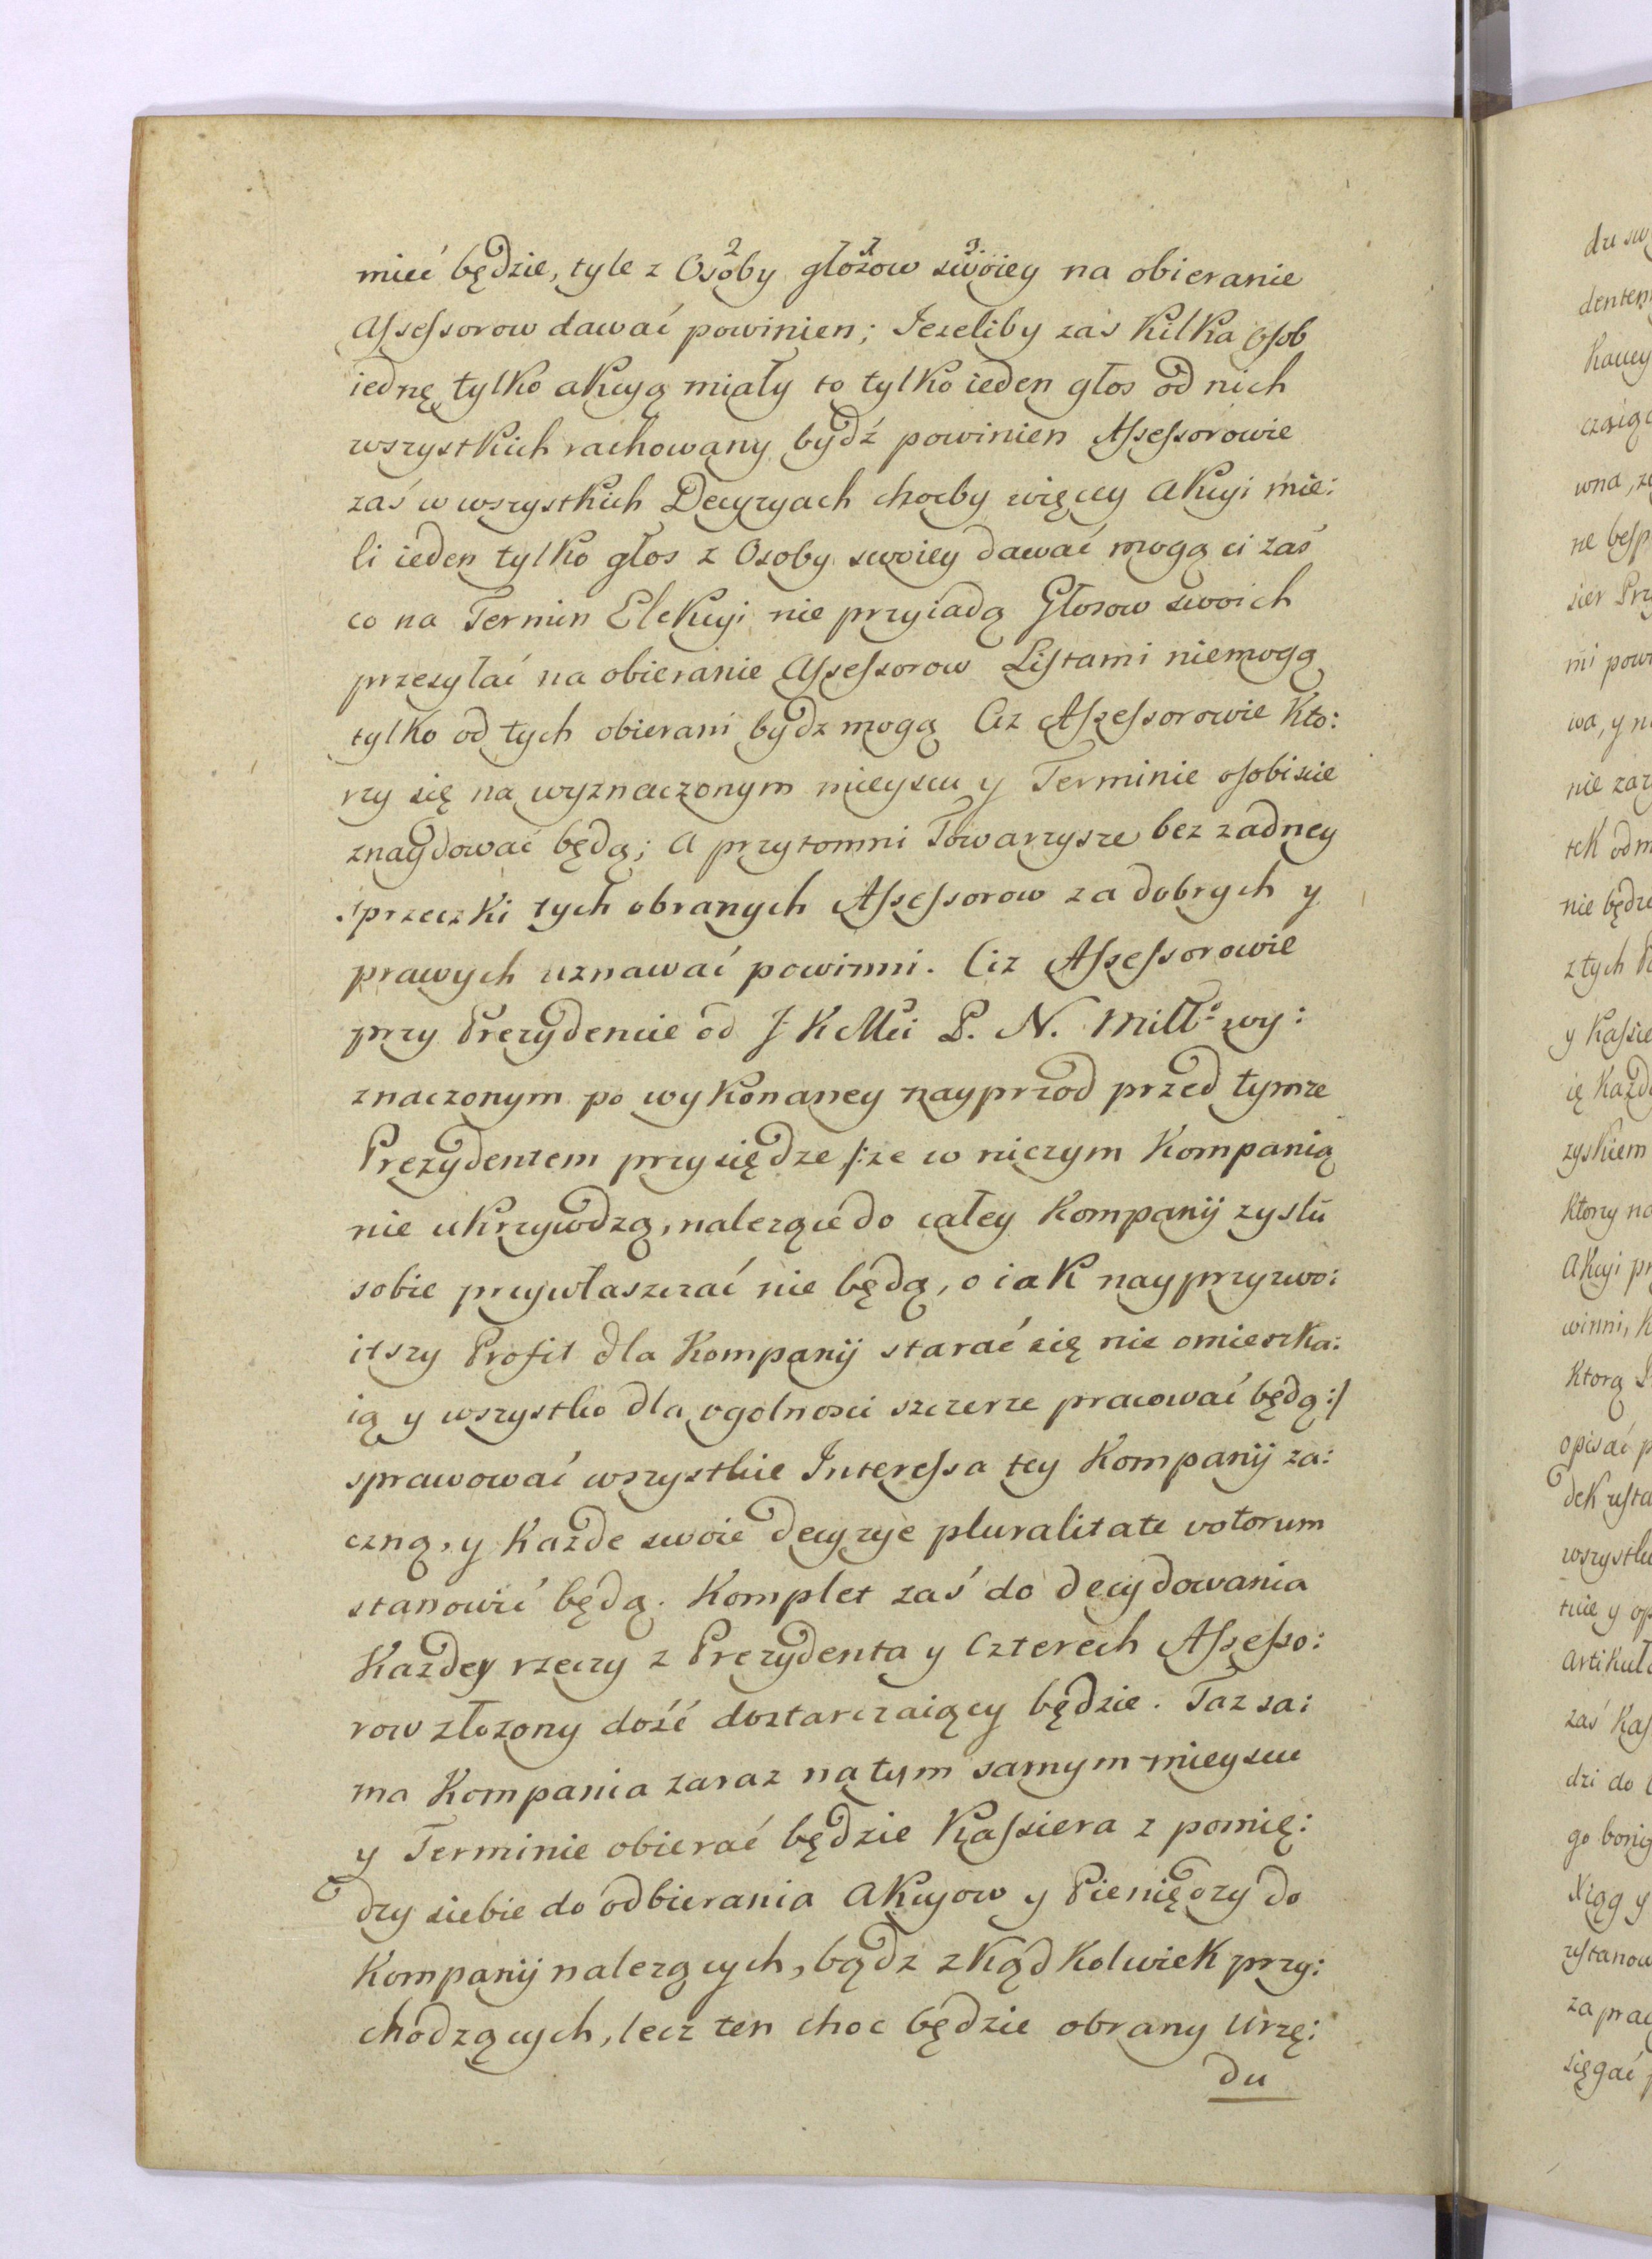 mieć będzie, tyle z Osoby głosow swoiey na obieranie
Assessorow dawać powinien; Jezeliby zaś kilka osob
iednę tylko akcyą miały to tylko ieden głos od nich
wszystkich rachowany bydź powinien Assessorowie
zaś w wszystkich Decyzyach choćby więcey Akcyi mie:
li ieden tylko głos z Osoby swoiey dawać mogą ci zaś
co na Termin Elekcyi nie przyiadą Głosow swoich
przesyłać na obieranie Assessorow Listami niemogą
tylko od tych obierani bydz mogą Ciz Assessorowie kto:
rzy się na wyznaczonym mieyscu y Terminie osobiscie
znaydować będą; A przytomni Towarzysze bez zadney
sprzeczki tych obranych Assessorow za dobrych y
prawych uznawać powinni. Ciz Assessorowie
przy Prezydencie od J K Mci P. N. Miłł:º wy:
znaczonym po wykonaney nayprzod przed tymze
Prezydentem przysiędze /:ze w niczym Kompanią
nie ukrzywdzą, nalezące do całey Kompanij zysku
sobie przywłaszczać nie będą, o iak nayprzyzwo:
itszy Profit dla Kompanij starać się nie omieszka:
ią y wszystko dla ogolnosci szczerze pracować będą:/
sprawować wszystkie Interessa tey Kompanij za:
czną, y każde swoie decyzye pluralitate votorum
stanowić będą. Komplet zaś do decydowania
Kazdey rzeczy z Prezydenta y Czterech Assesso:
row złozony dość dostarczaiący będzie. Taz sa:
ma Kompania zaraz na tym samym mieyscu
y Terminie obierać będzie Kassiera z pomię:
dzy siebie do odbierania Akcyow y Pieniędzy do
Kompanij nalezących, bądz zkąd kolwiek przy:
chodzących, lecz ten choc będzie obrany Urzę:
du
2 1 3
du sw
dentem
kaucy
czaiąc
wna, ze
ne besp
sier Prz
mi powi
wa, y n
nie zaz
tek odm
nie będze
z tych P
y Kassie
ię Każd
zyskiem
ktory na
Akcyi pr
winni, k
Ktorą
opisać p
dek usta
wszystki
Artikuł
zaś Kas
dzi do
go
Xiąg y
ustanow
za prac
sięgać